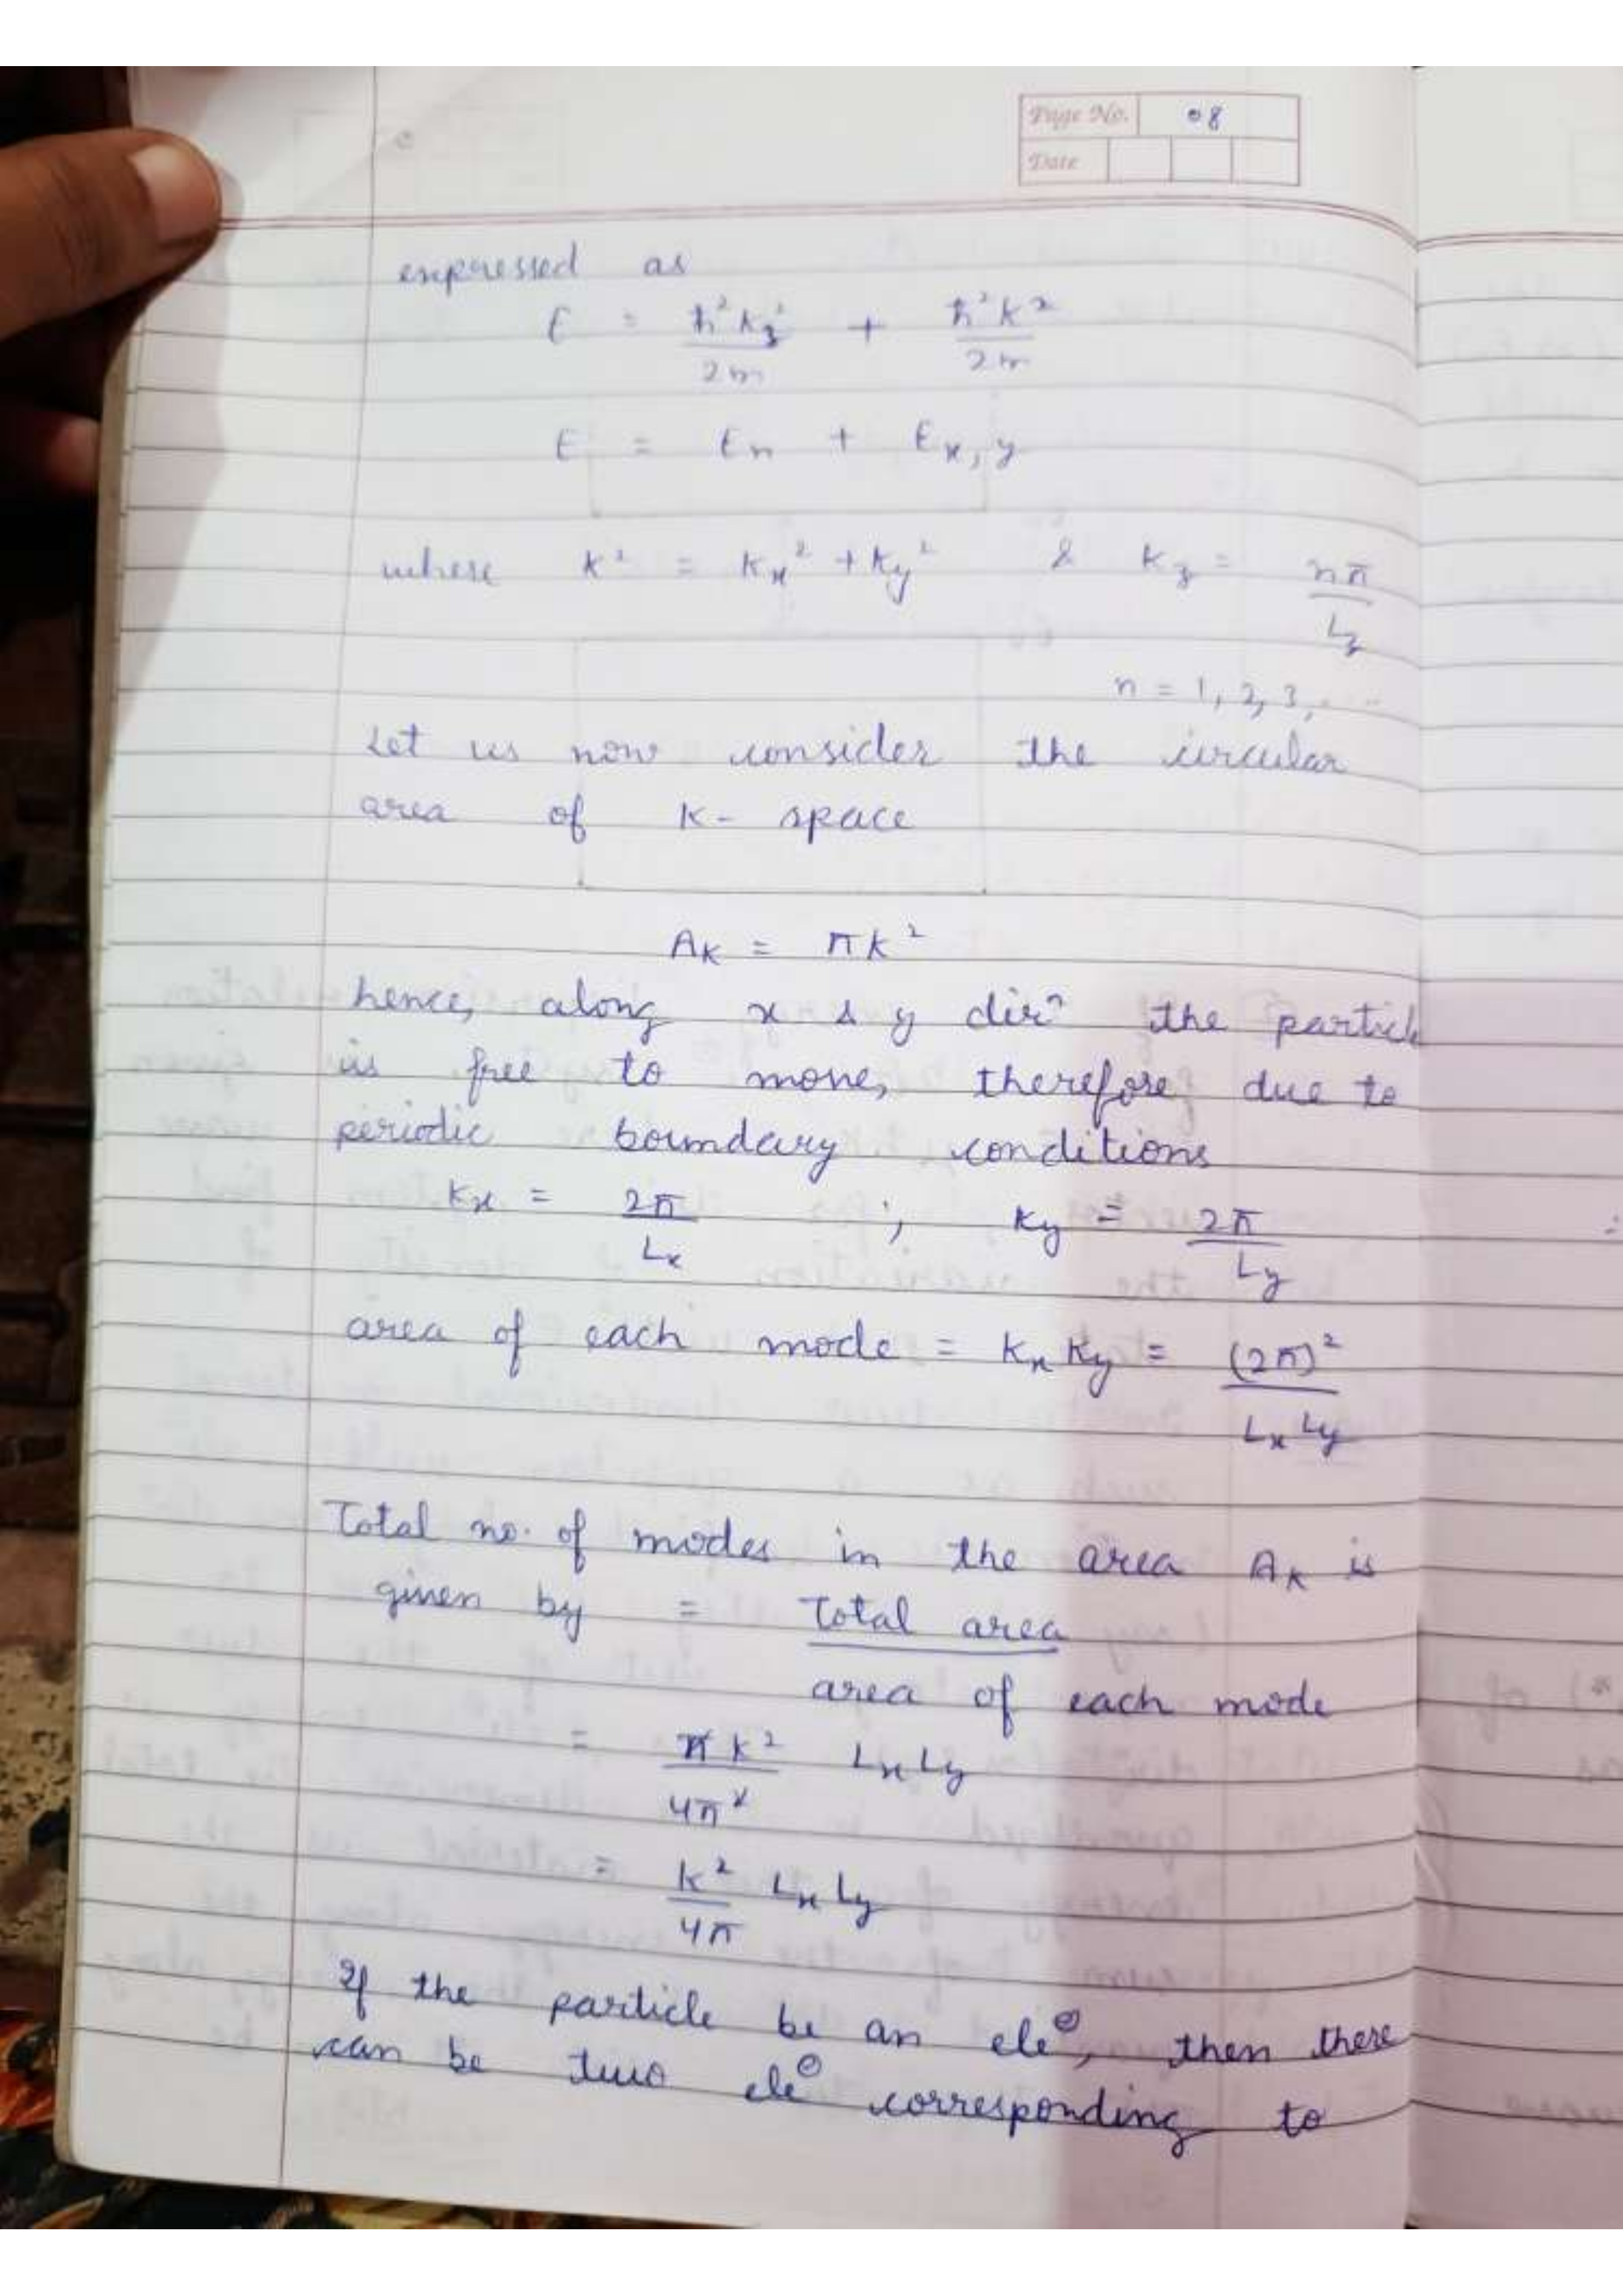 Page No. 08
Date
expressed as
E = ħ²k_z²/2m + ħ²k²/2m
E = En + Ex,y
where k² = kx² + ky² & kz = nπ/Lz
n = 1, 2, 3, ...
Let us now consider the circular
area of k- space
AK = πk²
hence, along x & y dirⁿ the particle
is free to move, therefore due to
periodic boundary conditions
kx = 2π/Lx ; ky = 2π/Ly
area of each mode = kx ky = (2π)²/Lx Ly
Total no. of modes in the area AK is
given by = Total area
area of each mode
= πk²/4π² Lx Ly
= k²/4π Lx Ly
If the particle be an ele⊖, then there
can be two ele⊖ corresponding to